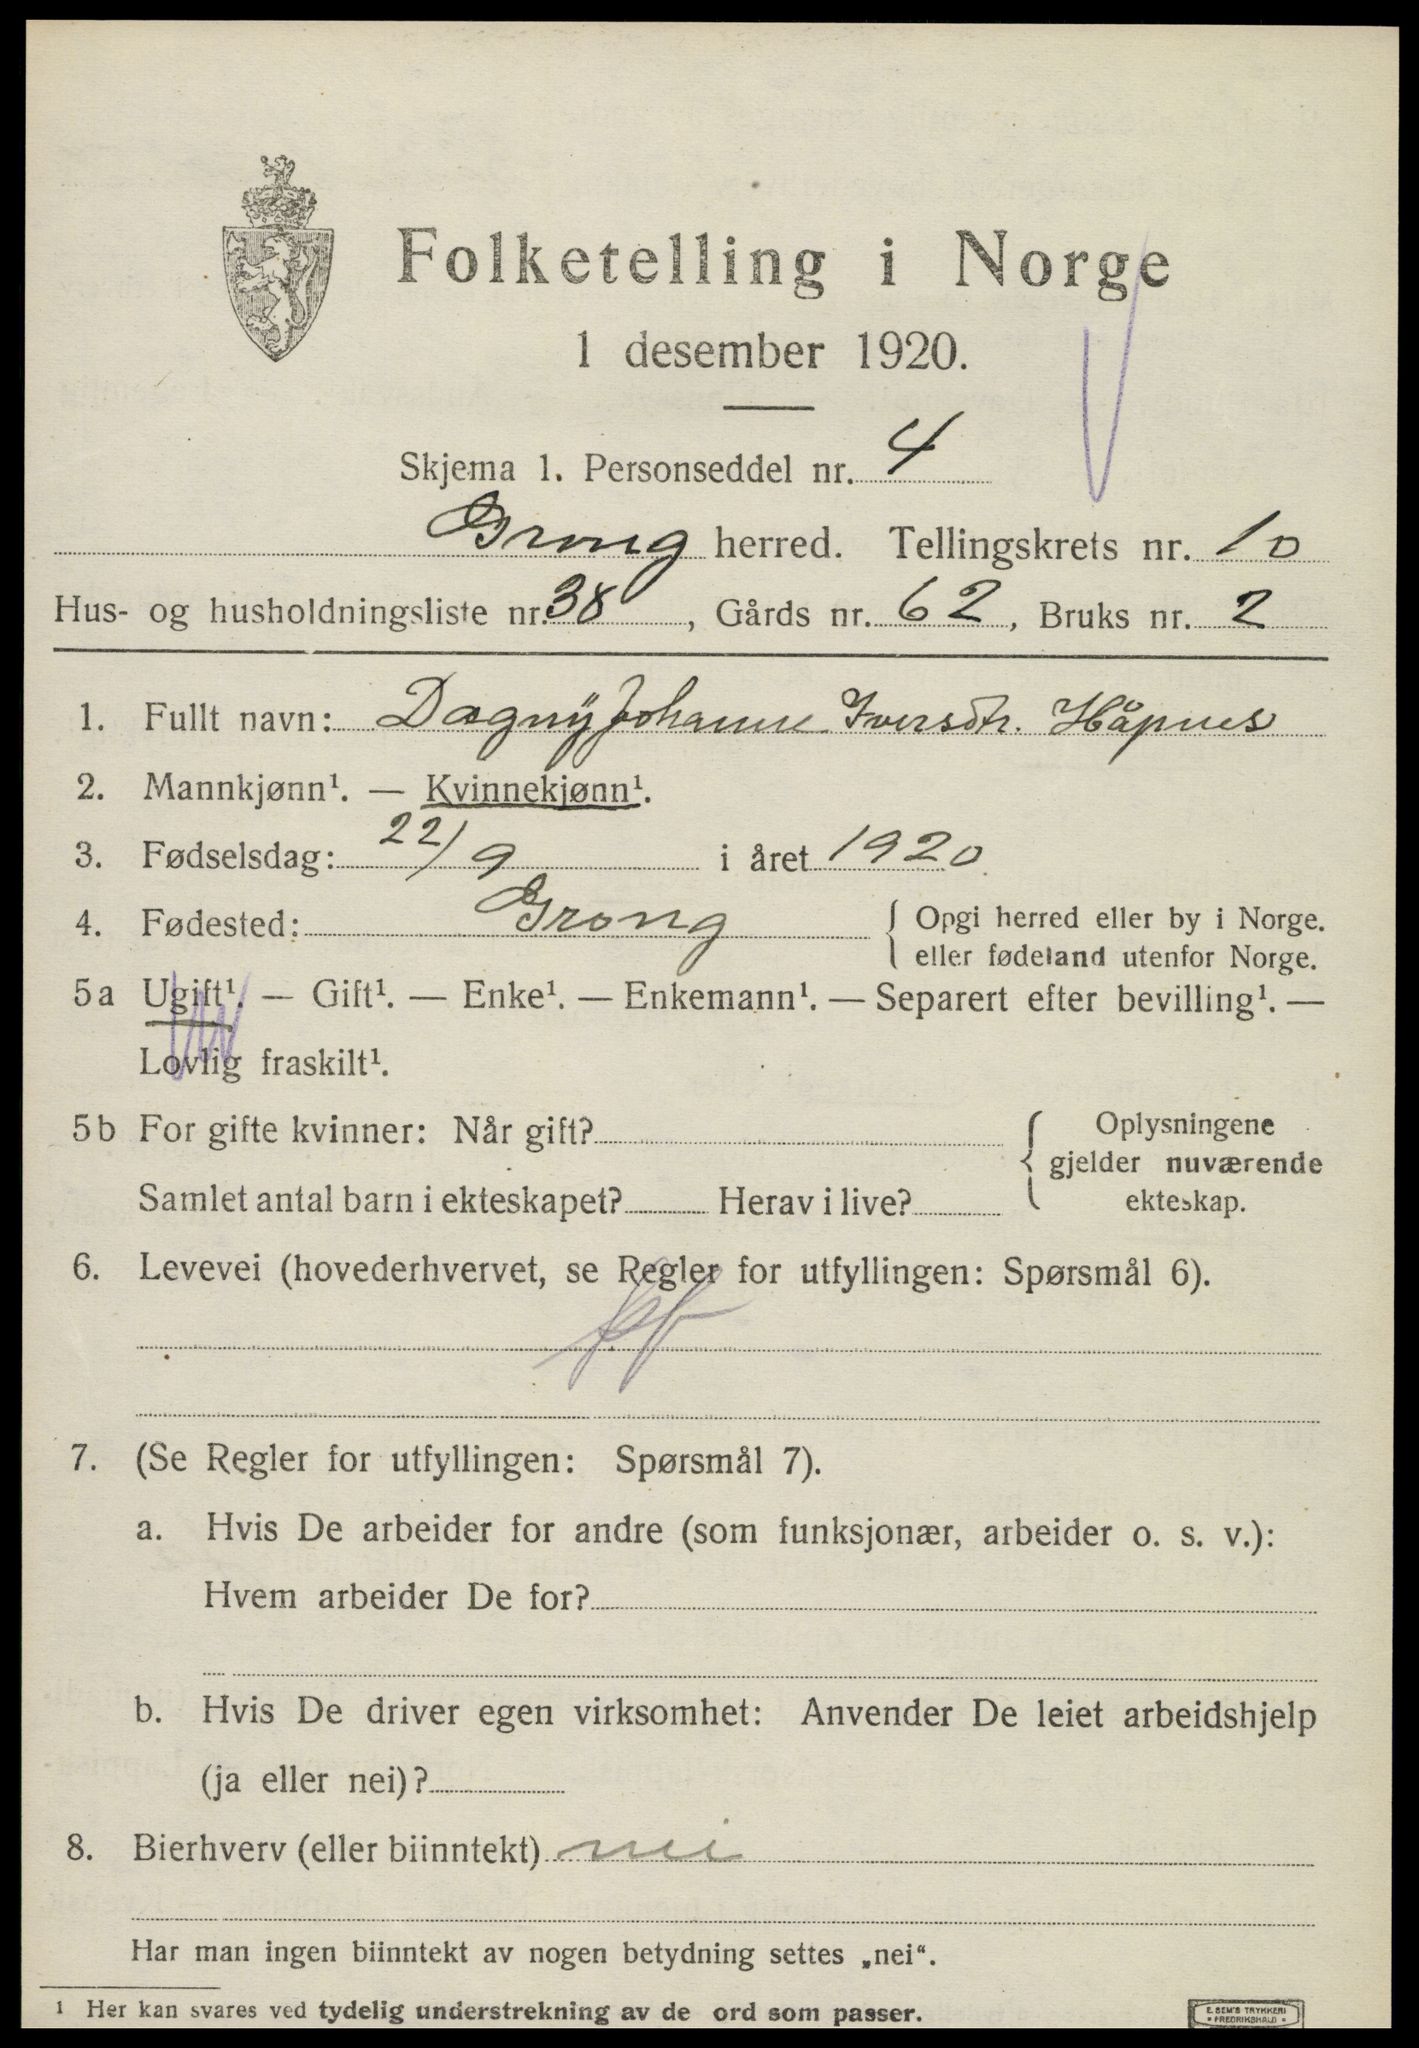 Folketelling i Norge
1 desember 1920.
Skjema 1. Personseddel nr. 4
Grong herred. Tellingskrets nr. 10
Hus- og husholdningsliste nr. 38, Gårds nr. 62, Bruks nr. 2
1. Fullt navn: Dagny Johanne Iversdtr. Håpnes
2. Mannkjønn¹. — Kvinnekjønn¹.
3. Fødselsdag: 22/9 i året 1920
4. Fødested: Grong { Opgi herred eller by i Norge.
eller fødeland utenfor Norge.
5a Ugift¹. — Gift¹. — Enke¹. — Enkemann¹. — Separert efter bevilling¹. —
Lovlig fraskilt¹.
5b For gifte kvinner: Når gift?
Samlet antal barn i ekteskapet? Herav i live?
{ Oplysningene
gjelder nuværende
ekteskap.
6. Levevei (hovederhvervet, se Regler for utfyllingen: Spørsmål 6).
7. (Se Regler for utfyllingen: Spørsmål 7).
a. Hvis De arbeider for andre (som funksjonær, arbeider o. s. v.):
Hvem arbeider De for?
b. Hvis De driver egen virksomhet: Anvender De leiet arbeidshjelp
(ja eller nei)?
8. Bierhverv (eller biinntekt) nei
Har man ingen biinntekt av nogen betydning settes „nei“.
1 Her kan svares ved tydelig understrekning av de ord som passer.
E. SEM'S TRYKKERI
• FREDRIKSHALD •